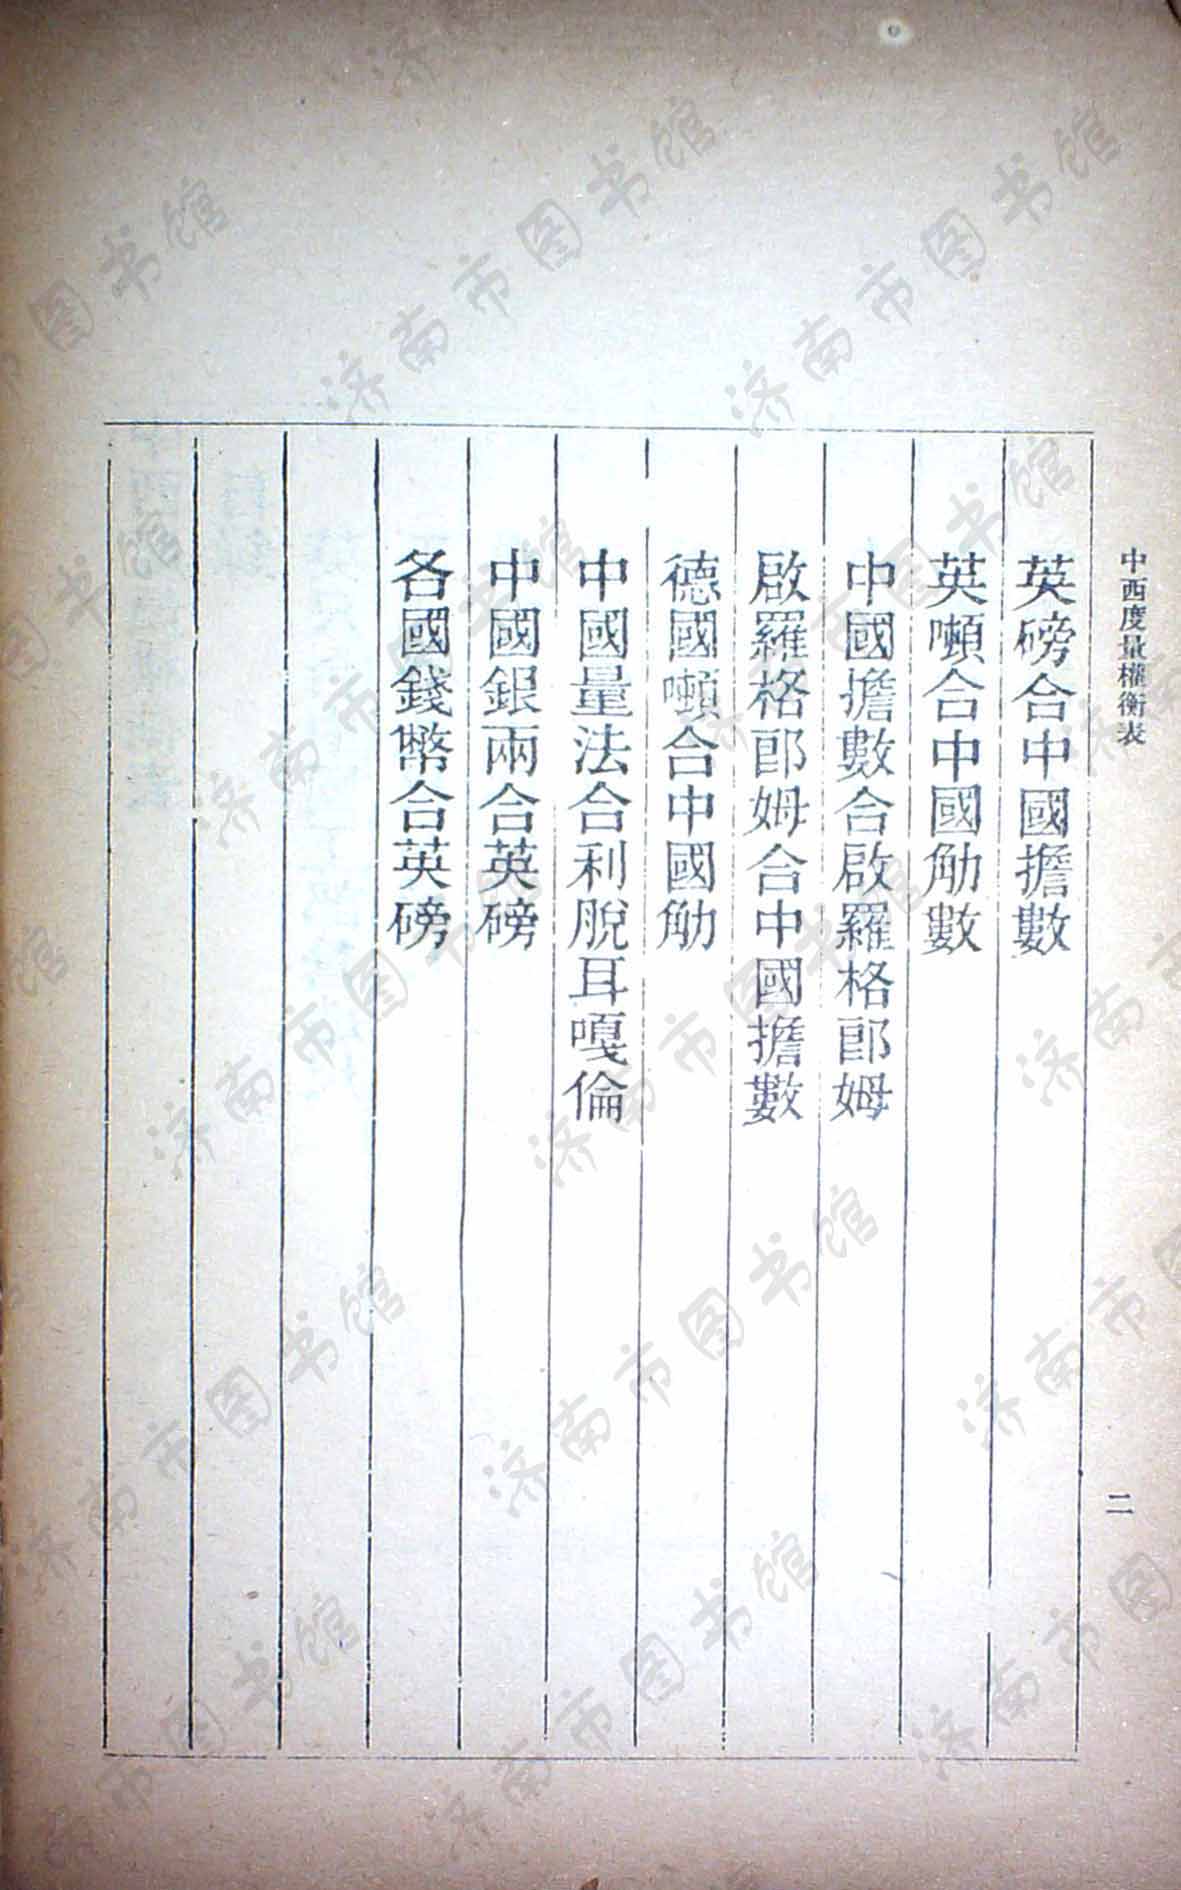 中西度量權衡表
二
英磅合中國擔數
英噸合中國觔數
中國擔數合啟羅格郎姆
啟羅格郎姆合中國擔數
德國噸合中國觔
中國量法合利脫耳嘎倫
中國銀兩合英磅
各國錢幣合英磅
济南市图书馆